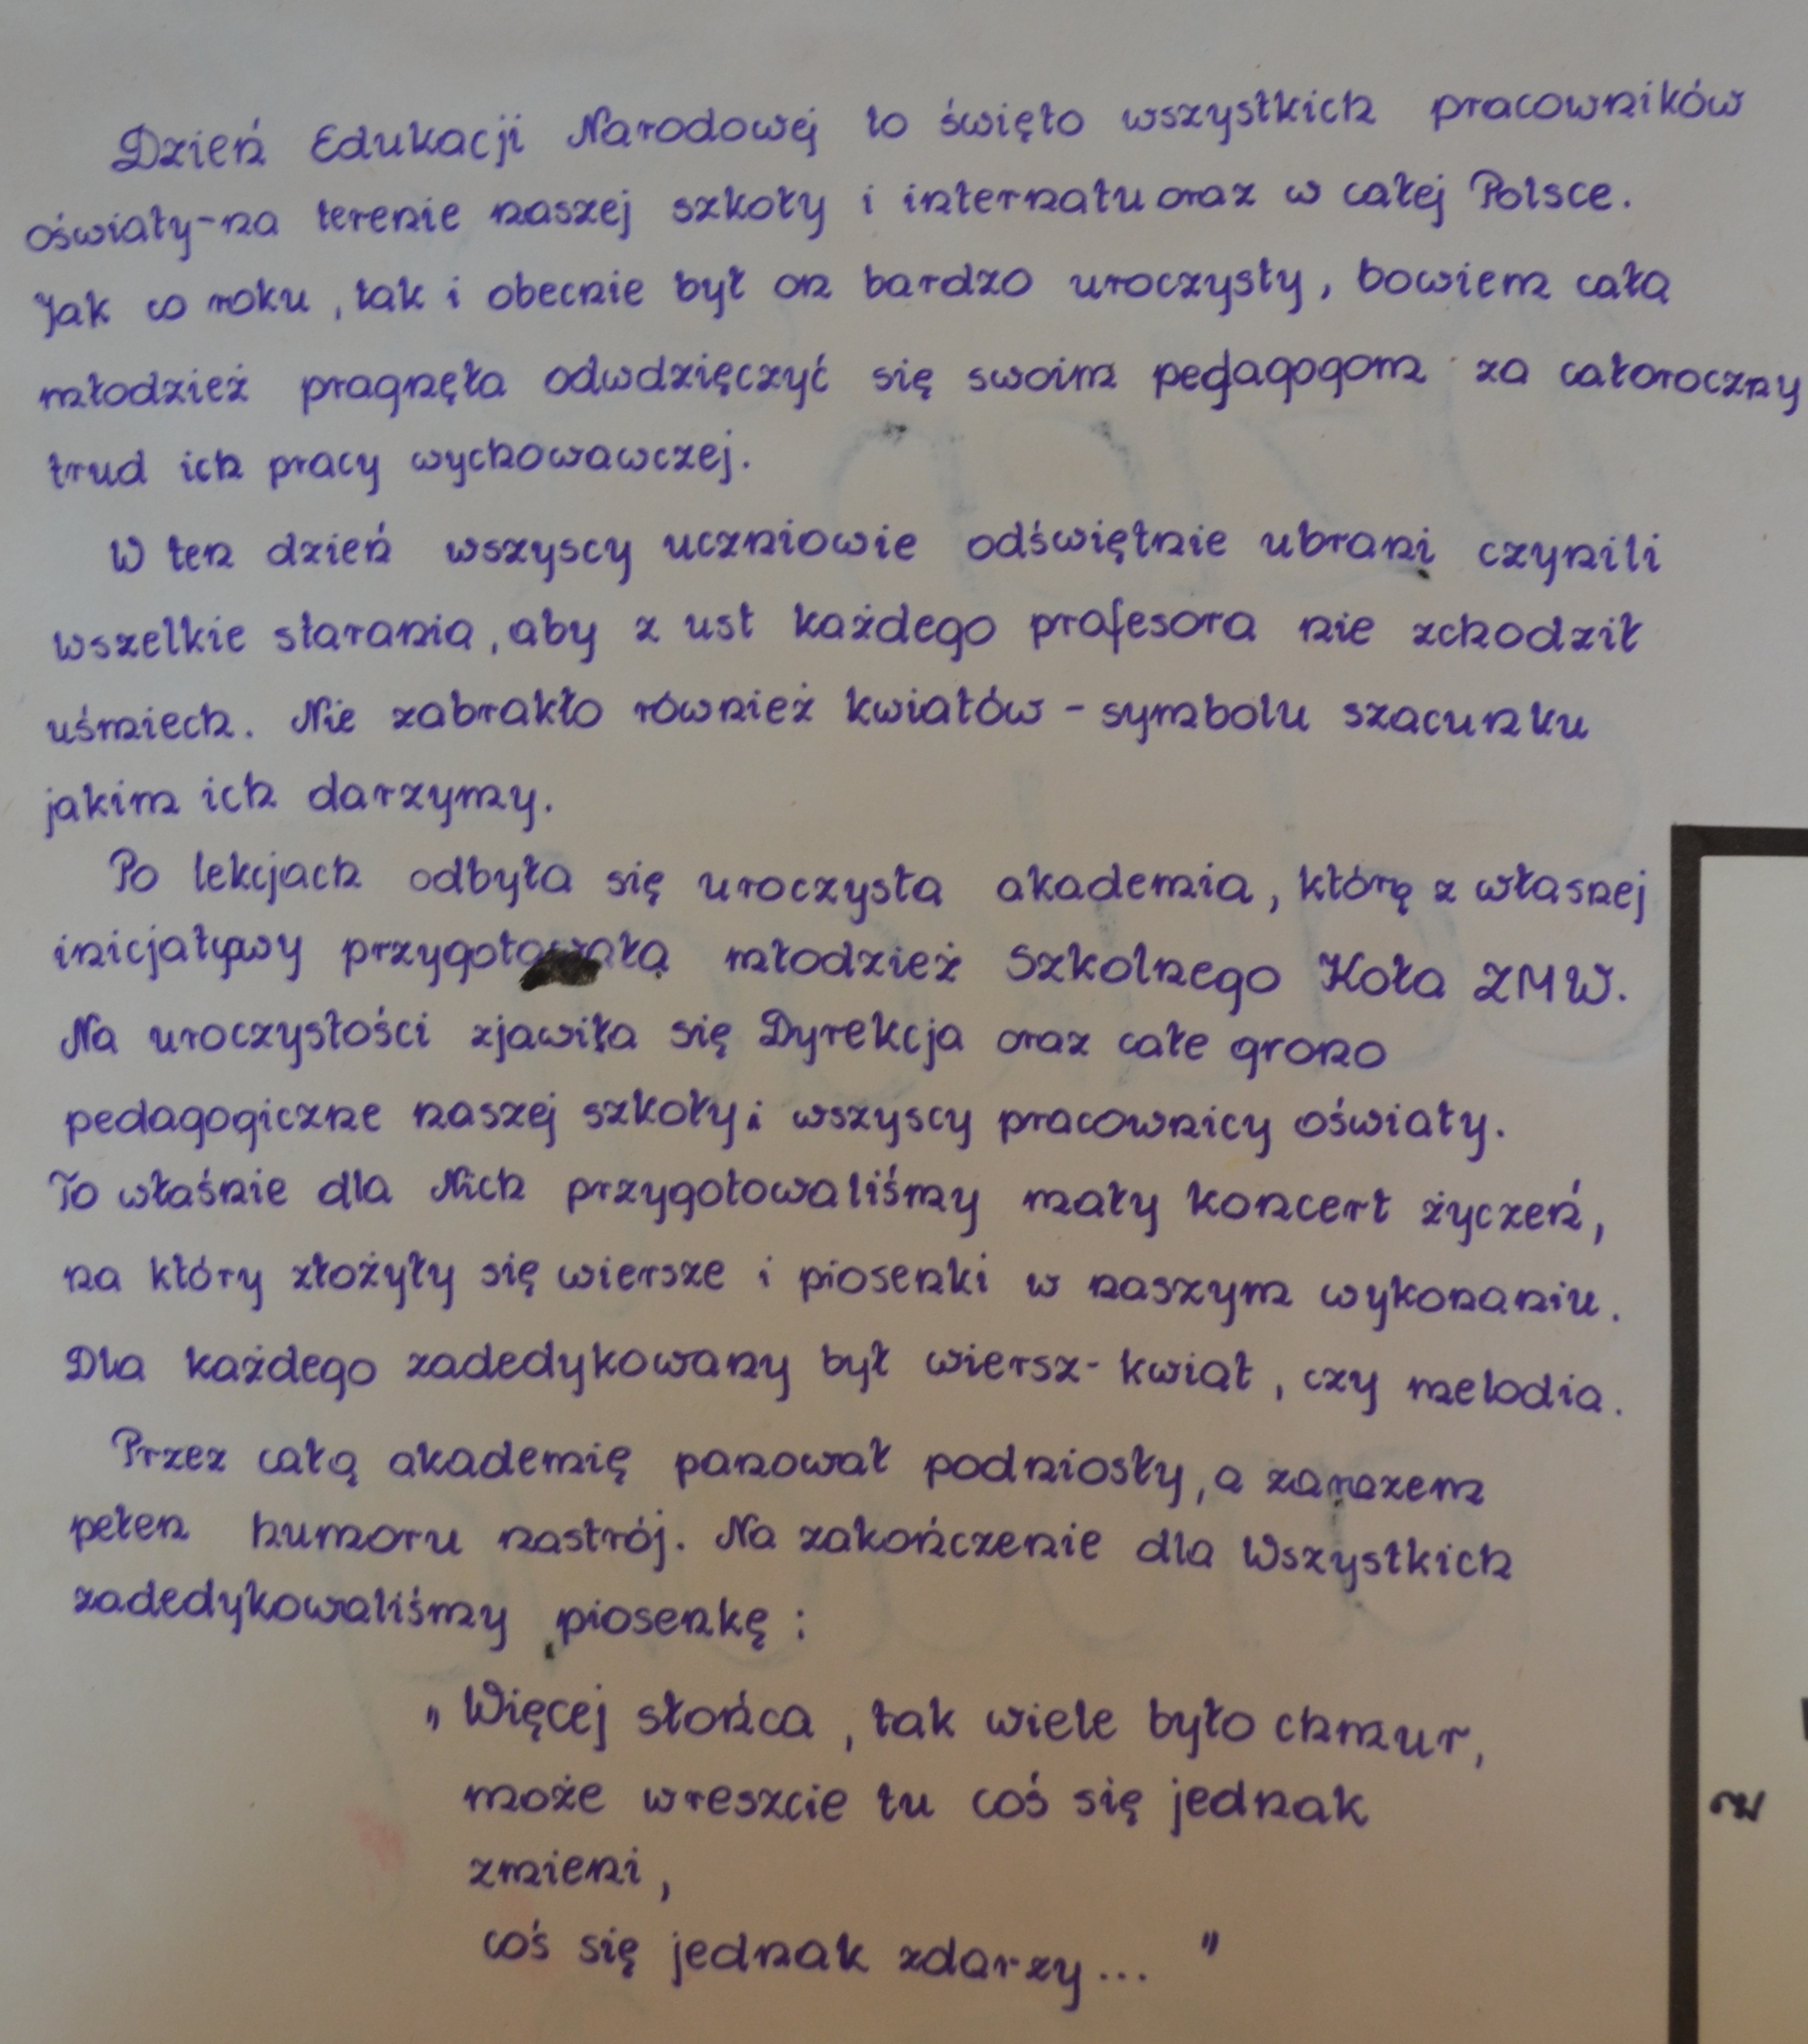 Dzień Edukacji Narodowej to święto wszystkich pracowników
oświaty-na terenie naszej szkoły i internatu oraz w całej Polsce.
Jak co roku, tak i obecnie był on bardzo uroczysty, bowiem cała
młodzież pragnęła odwdzięczyć się swoim pedagogom za całoroczny
trud ich pracy wychowawczej.
W ten dzień wszyscy uczniowie odświętnie ubrani czynili
wszelkie starania, aby z ust każdego profesora nie zchodził
uśmiech. Nie zabrakło również kwiatów - symbolu szacunku
jakim ich darzymy.
Po lekcjach odbyła się uroczysta akademia, którą z własnej
inicjatywy przygotowała młodzież Szkolnego Koła ZMW.
Na uroczystości zjawiła się Dyrekcja oraz całe grono
pedagogiczne naszej szkoły i wszyscy pracownicy oświaty.
To właśnie dla Nich przygotowaliśmy mały koncert życzeń,
na który złożyły się wiersze i piosenki w naszym wykonaniu.
Dla każdego zadedykowany był wiersz- kwiat, czy melodia.
Przez całą akademię panował podniosły, a zarazem
pełen humoru nastrój. Na zakończenie dla Wszystkich
zadedykowaliśmy piosenkę :
„Więcej słońca, tak wiele było chmur,
może wreszcie tu coś się jednak
zmieni,
coś się jednak zdarzy... "